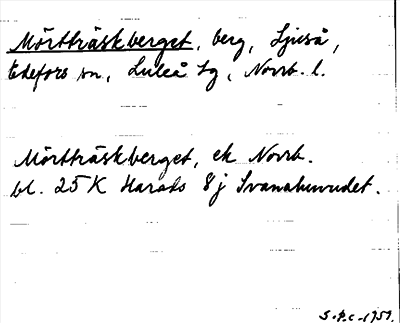 Mörtträskberget, berg, Ljuså,
Edefors sn, Luleå tg, Norrb. l.
Mörtträskberget, ek Norrb.
bl. 25 K Harads 8 j Svanahuvudet.
S.P.C. 1959.